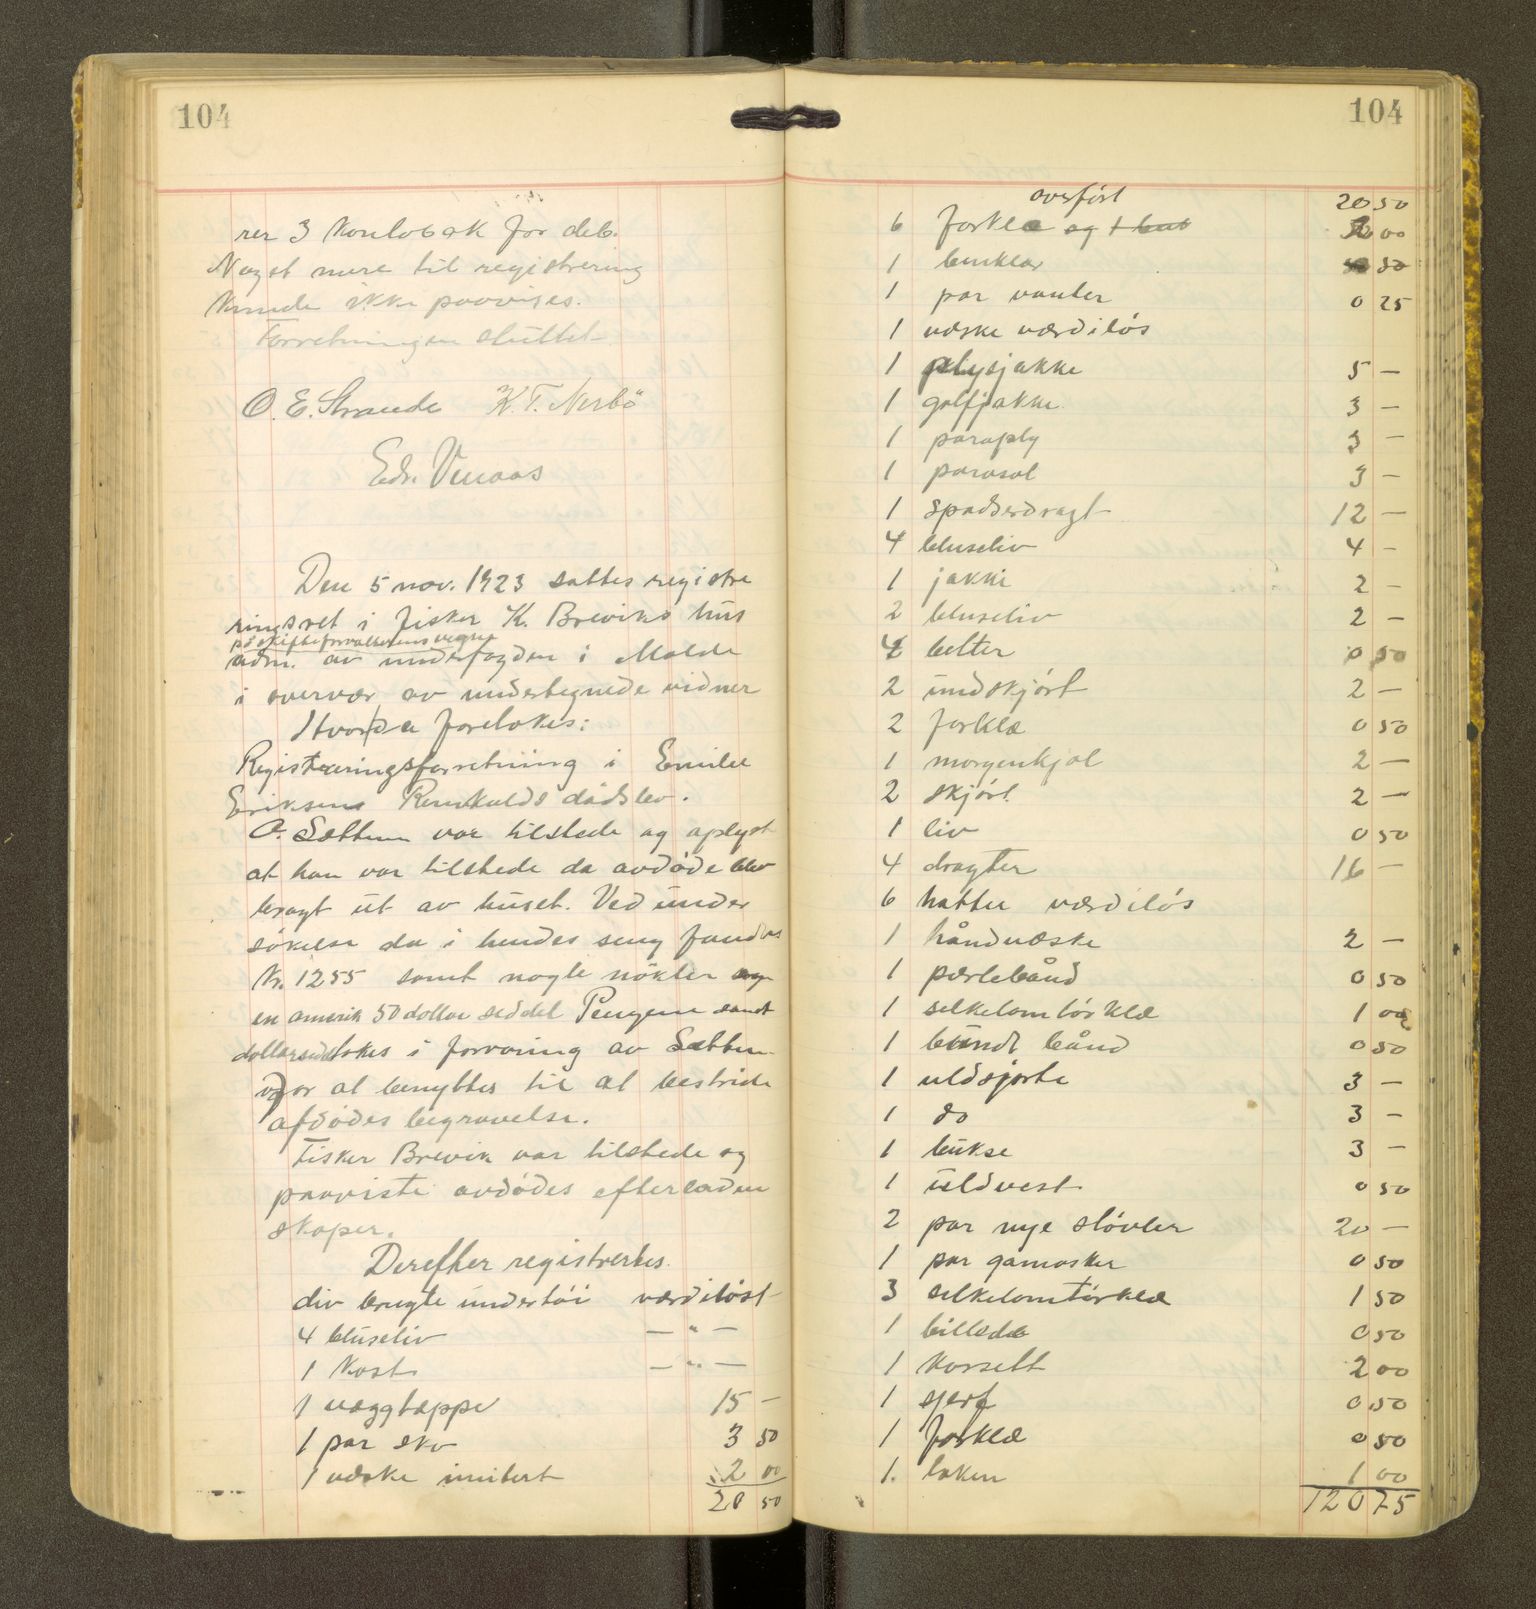 104
rer 3 kontobøk for deb.
Noget mere til registrering
kunde ikke paavises.
Forretningen sluttet
O. E. Strande K. T. Nerbö
Edv. Venaas
Den 5 nov. 1923 sattes registre
ringsret i fisker K. Breviks hus
på skifteforvalterens vegne
adm. av underfogden i Molde
i overvær av undertegnede vidner
Hvorda foretokes:
Registreringsforretning i Emilie
Eriksens Remkulds dödsbo.
O. Sættem var tilstede og oplyst
at han var tilstede da avdöde blev
bragt ut av huset. Ved under
sökelse da i hendes seng fandtes
kr. 1255 samt nogle nökler og
en amerik 50 dollar seddel Pengene samt
dollarsed tokes i forvaring av Sættem
for at benyttes til at bestride
afdödes begravelse.
Fisker Brevik var tilstede og
paaviste avdödes efterladen
skaper.
Derefter registrertes.
div brugte undertöi værdilöst
4 bluseliv — " —
1 Kost — " —
1 væggtæppe 15 —
1 par sko 3 50
1 væske imitert 2 00
20 50
104
overfört 20 50
6 forklæ og 00
1 benklær 50
1 par vanter 0 25
1 væske værdilös
1 plysjakke 5 —
1 golfjakke 3 —
1 paraply 3 —
1 parasol 3 —
1 spadserdragt 12 —
4 bluseliv 4 —
1 jakke 2 —
2 bluseliv 2 —
4 belter 0 50
2 undskjört 2 —
2 forklæ 0 50
1 morgenkjol 2 —
2 skjört 2 —
1 liv 0 50
4 dragter 16 —
6 hatter værdilös
1 håndvæske 2 —
1 perlebånd 0 50
1 silkelomtörklæ 1 00
1 bundt bånd 0 50
1 uldsjorte 3 —
1 do 3 —
1 bukse 3 —
1 uldvest 0 50
2 par nye stövler 20 —
1 par gamasker 0 50
3 silkelomtörklæ 1 50
1 billede 0 50
1 korsett 2 00
1 sjerf 0 50
1 forklæ 0 50
1. laken 1 00
120 75